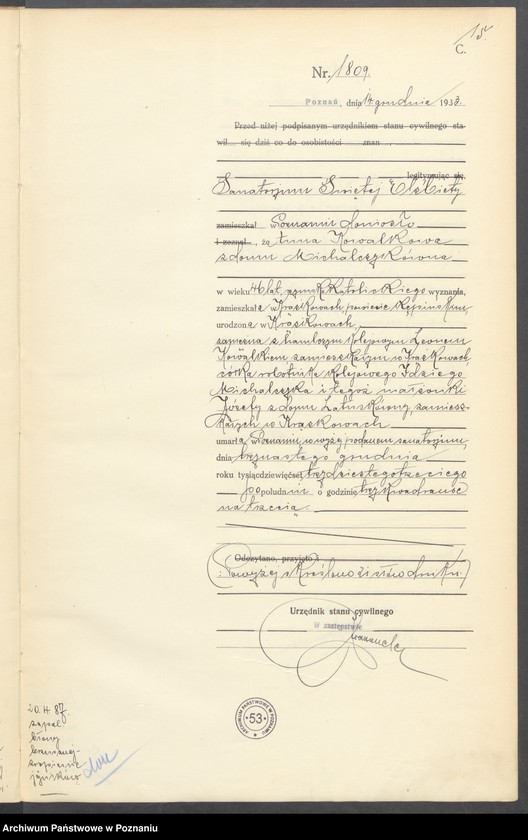 15
C.
Nr. 1809
Poznań, dnia 14 grudnia 1933.
Przed niżej podpisanym urzędnikiem stanu cywilnego sta-
wił... się dziś co do osobistości znan
legitymując się
Sanatorjum Świętej Elżbiety
zamieszkał w Poznaniu doniosło
i zeznał, że Anna Kowalkowa
z domu Michalczykówna
w wieku 46 lat, rzymskokatolickiego wyznania,
zamieszkała w Kraskowach, powiecie Kępińskim,
urodzona w Kraskowach,
zamężna z hamulczym kolejowym Leonem
Kowalkiem, zamieszkałym w Kraskowach,
córka robotnika kolejowego Idziego
Michalczyka i tegoż małżonki
Józefy z domu zamiesz-
kałych w Kraskowach
umarła w Poznaniu, w wyżej podanem sanatorjum,
dnia trzynastego grudnia
roku tysiącdziewięćset trzydziestegotrzeciego
po południu o godzinie trzy kwadranse
na trzecią
Odczytano, przyjęto i
: Powyżej skreślono słów druku
Urzędnik stanu cywilnego
W zastępstwie
ARCHIWUM PAŃSTWOWE W POZNANIU
53
Archiwum Państwowe w Poznaniu